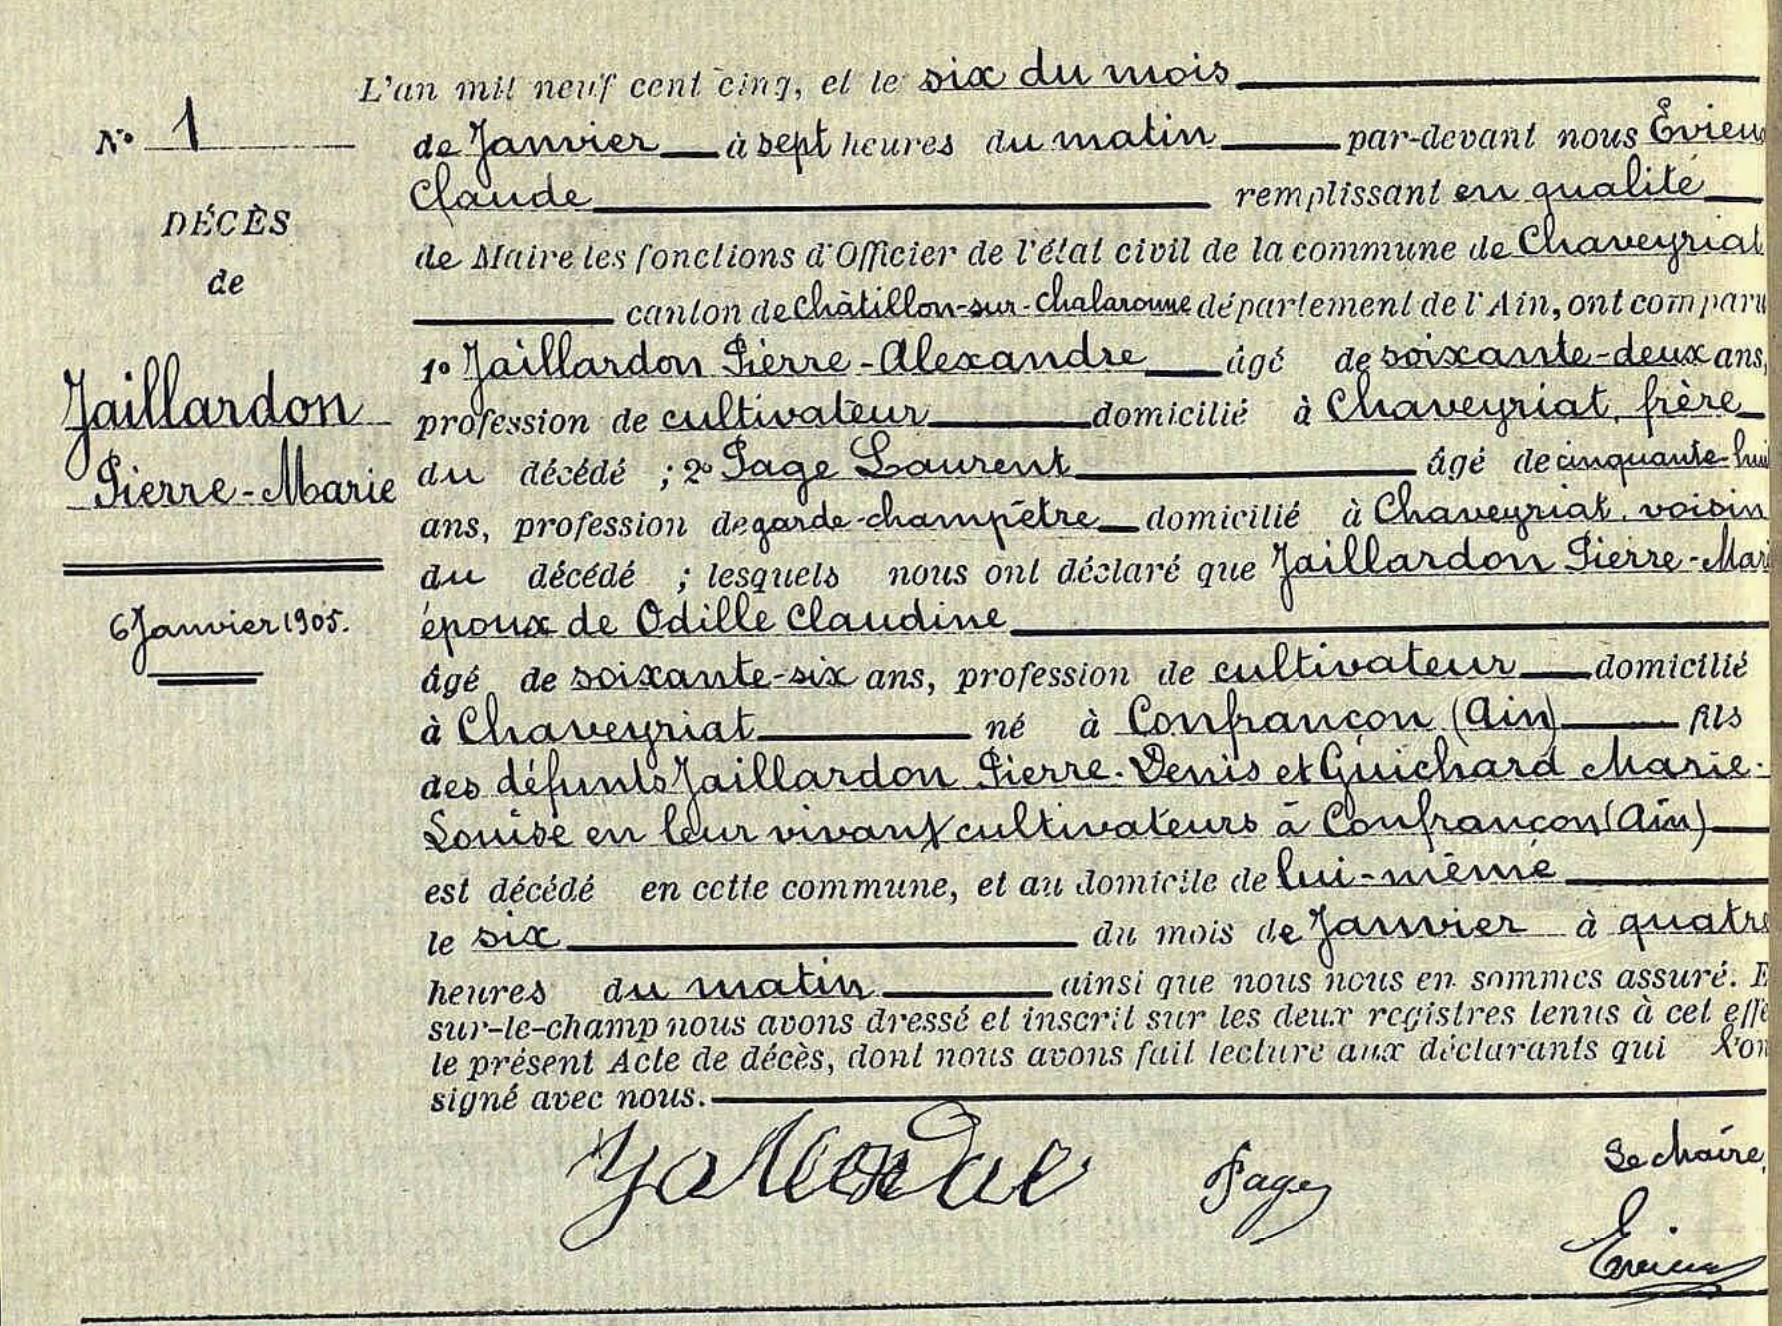 L'an mil neuf cent cinq, et le six du mois
N° 1
de Janvier à sept heures du matin par-devant nous Évieux
Claude remplissant en qualité
DÉCÈS
de Maire les fonctions d'Officier de l'état civil de la commune de Chaveyriat
de
canton de Châtillon-sur-Chalaronne département de l'Ain, ont comparu
1° Jaillardon Pierre-Alexandre âgé de soixante-deux ans,
Jaillardon
profession de cultivateur domicilié à Chaveyriat, frère
du décédé ; 2° Page Laurent âgé de cinquante-hui
Pierre-Marie
ans, profession de garde-champêtre domicilié à Chaveyriat, voisin
du décédé ; lesquels nous ont déclaré que Jaillardon Pierre-Mari
6 Janvier 1905.
époux de Odille Claudine
âgé de soixante-six ans, profession de cultivateur domicilié
à Chaveyriat né à Confrançon (Ain) fils
des défunts Jaillardon Pierre-Denis et Guichard Marie-
Louise en leur vivant cultivateurs à Confrançon (Ain)
est décédé en cette commune, et au domicile de lui-même
le six du mois de Janvier à quatre
heures du matin ainsi que nous nous en sommes assuré. E
sur-le-champ nous avons dressé et inscrit sur les deux registres tenus à cet effe
le présent Acte de décès, dont nous avons fait lecture aux déclarants qui l'on
signé avec nous.
Page
Le Maire,
Evieux